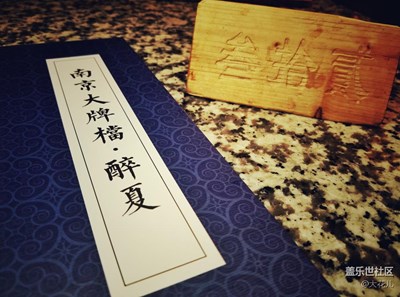 南京大牌檔·醉夏
叁拾貳
盖乐世社区
@大花儿